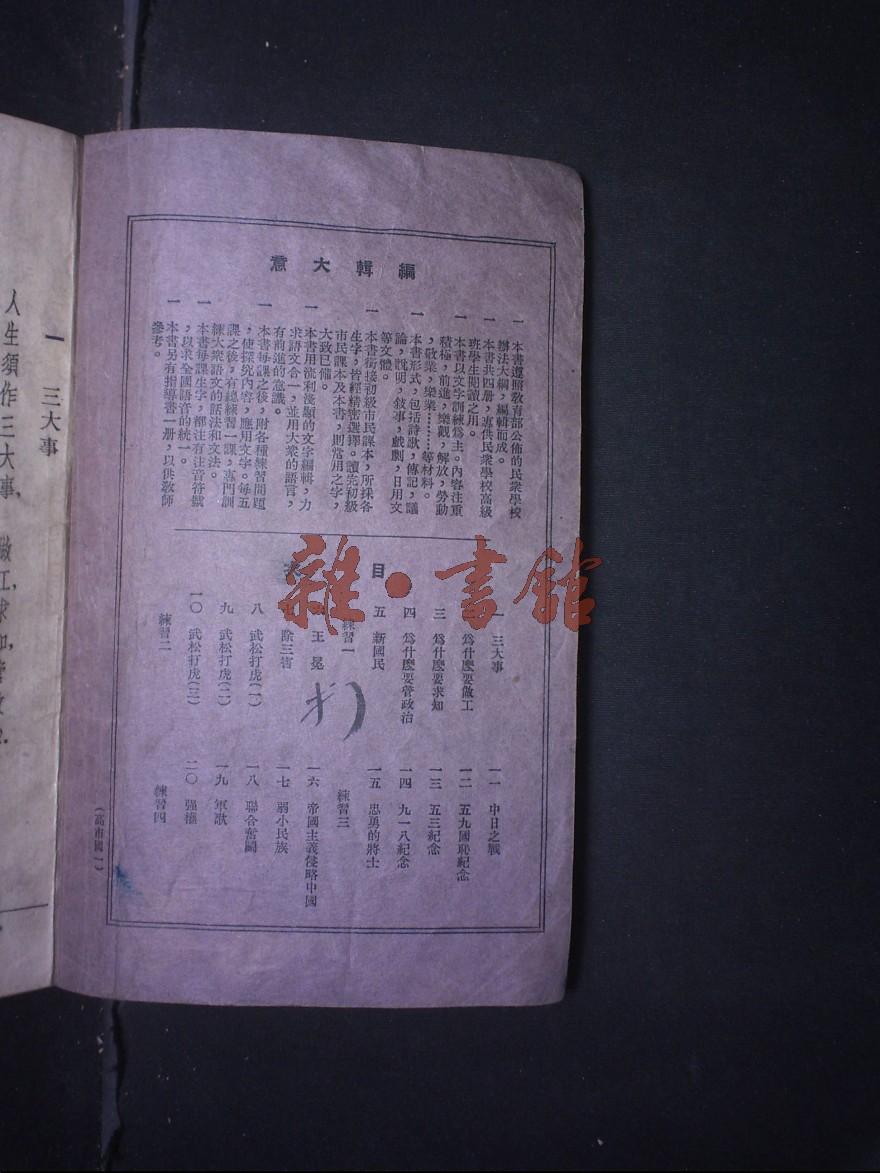 編輯大意
一　本書遵照教育部公佈的民衆學校
辦法大綱，編輯而成。
一　本書共四册，專供民衆學校高級
班學生閱讀之用。
一　本書以文字訓練爲主。內容注重
積極，前進，樂觀，解放，勞動
，敬業，樂業………等材料。
一　本書形式，包括詩歌，傳記，議
論，說明，敍事，戲劇，日用文
等文體。
一　本書銜接初級市民課本，所採各
生字，皆經精密選擇。讀完初級
市民課本及本書，則常用之字，
大致已備。
一　本書用流利淺顯的文字編輯，力
求語文合一，並用大衆的語言，
有前進的意識。
一　本書每課之後，附各種練習問題
，使探究內容，應用文字。每五
課之後，有總練習一課，專門訓
練大衆語文的話法和文法。
一　本書每課生字，都注有注音符號
，以求全國語音的統一。
一　本書另有指導書一册，以供敎師
參考。
目次
一　三大事
爲什麼要做工
三　爲什麼要求知
四　爲什麼要管政治
五　新國民
練習一
王冕
七　除三害
八　武松打虎（一）
九　武松打虎（二）
一〇　武松打虎（三）
練習二
一一　中日之戰
一二　五九國恥紀念
一三　五三紀念
一四　九一八紀念
一五　忠勇的將士
練習三
一六　帝國主義侵略中國
一七　弱小民族
一八　聯合奮鬭
一九　軍歌
二〇　强權
練習四
（高市國一）
雜·書館
一　三大事
人生須作三大事，
做工，求知，管政